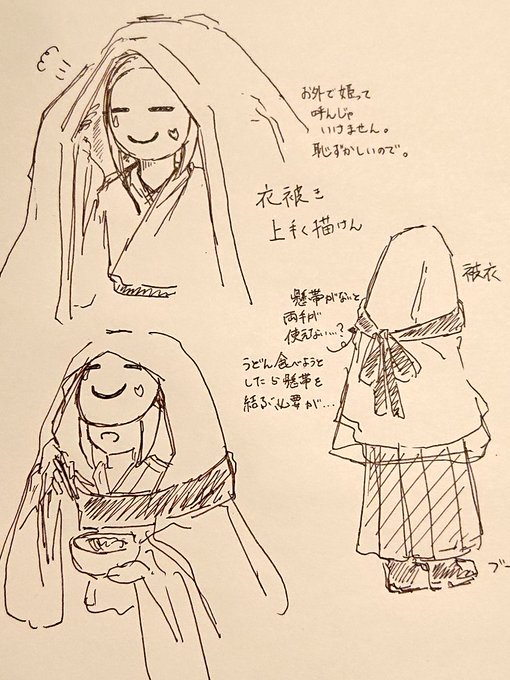 お外で姫って
呼んじゃ
いけません。
恥ずかしいので。
衣被き
上手く描けん
被衣
懸帯がないと
両手が
使えない…?
うどん食べようと
したら懸帯を
結ぶ必要が…
ブー